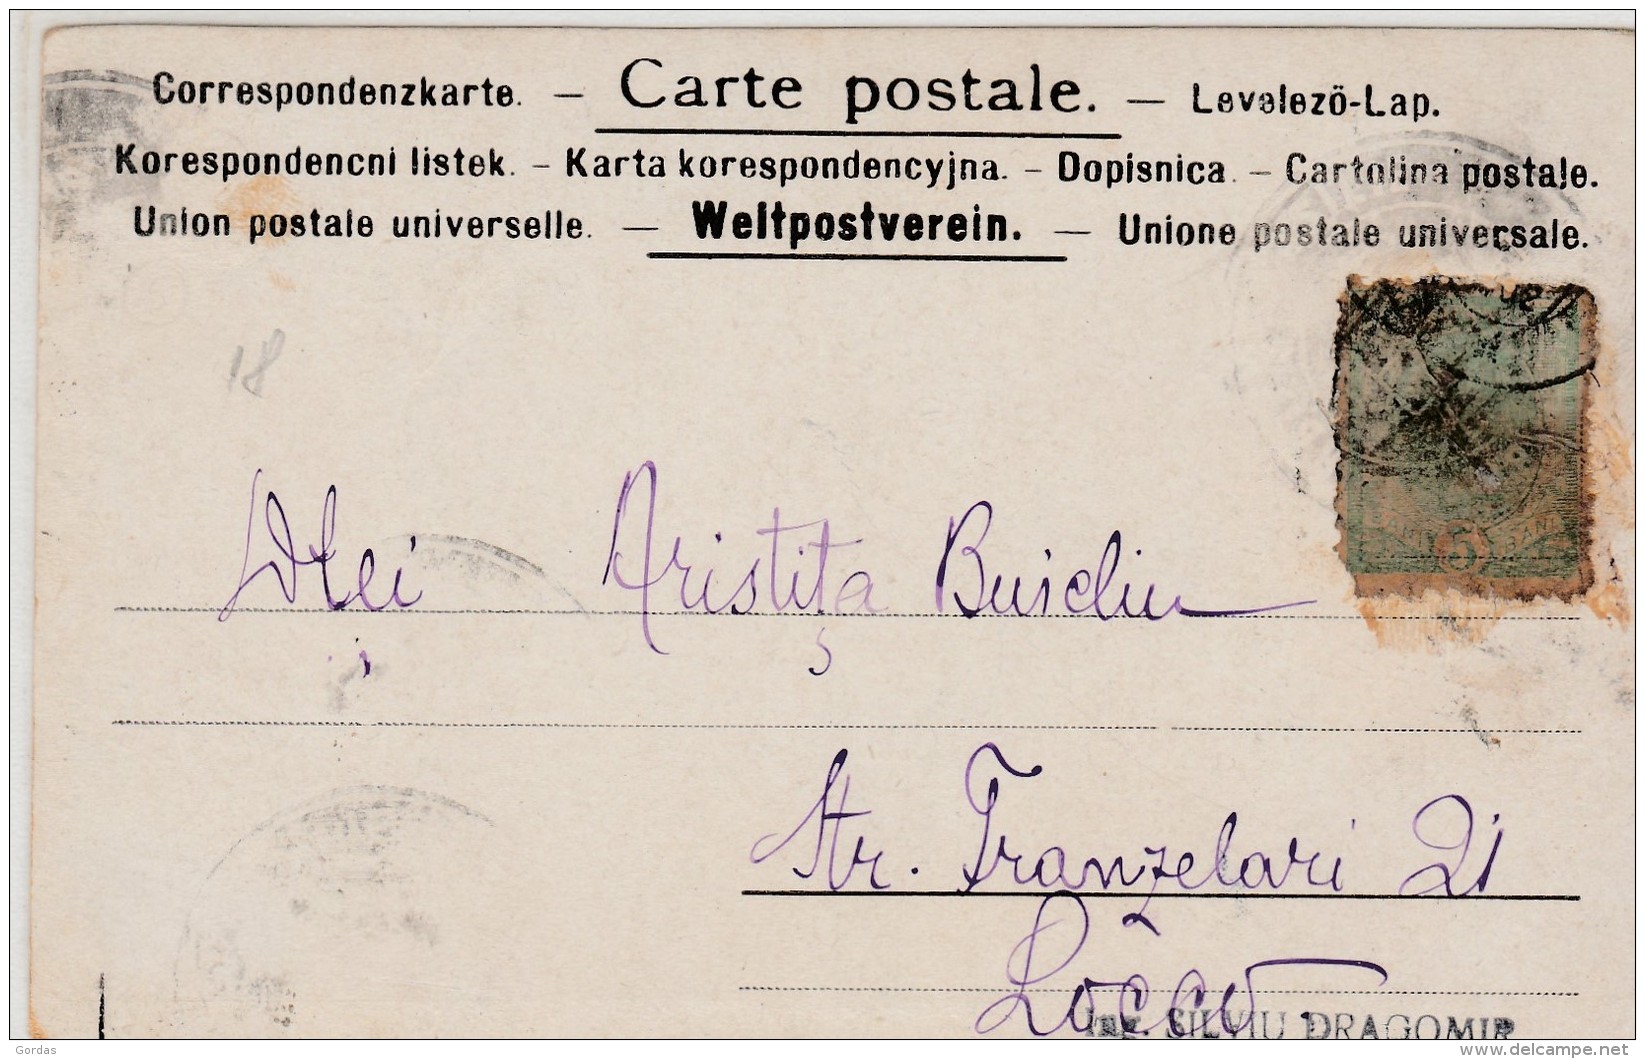 Correspondenzkarte. — Carte postale. — Levelezö-Lap.
Korespondencni listek. – Karta korespondencyjna. – Dopisnica. – Cartolina postale.
Union postale universelle. — Weltpostverein. — Unione postale universale.
18
BANI 5 BANI
Dlei Aristiţa
Str. Franzelari 21
Loco
Ing. SILVIU DRAGOMIR
Gordas
delcampe.net